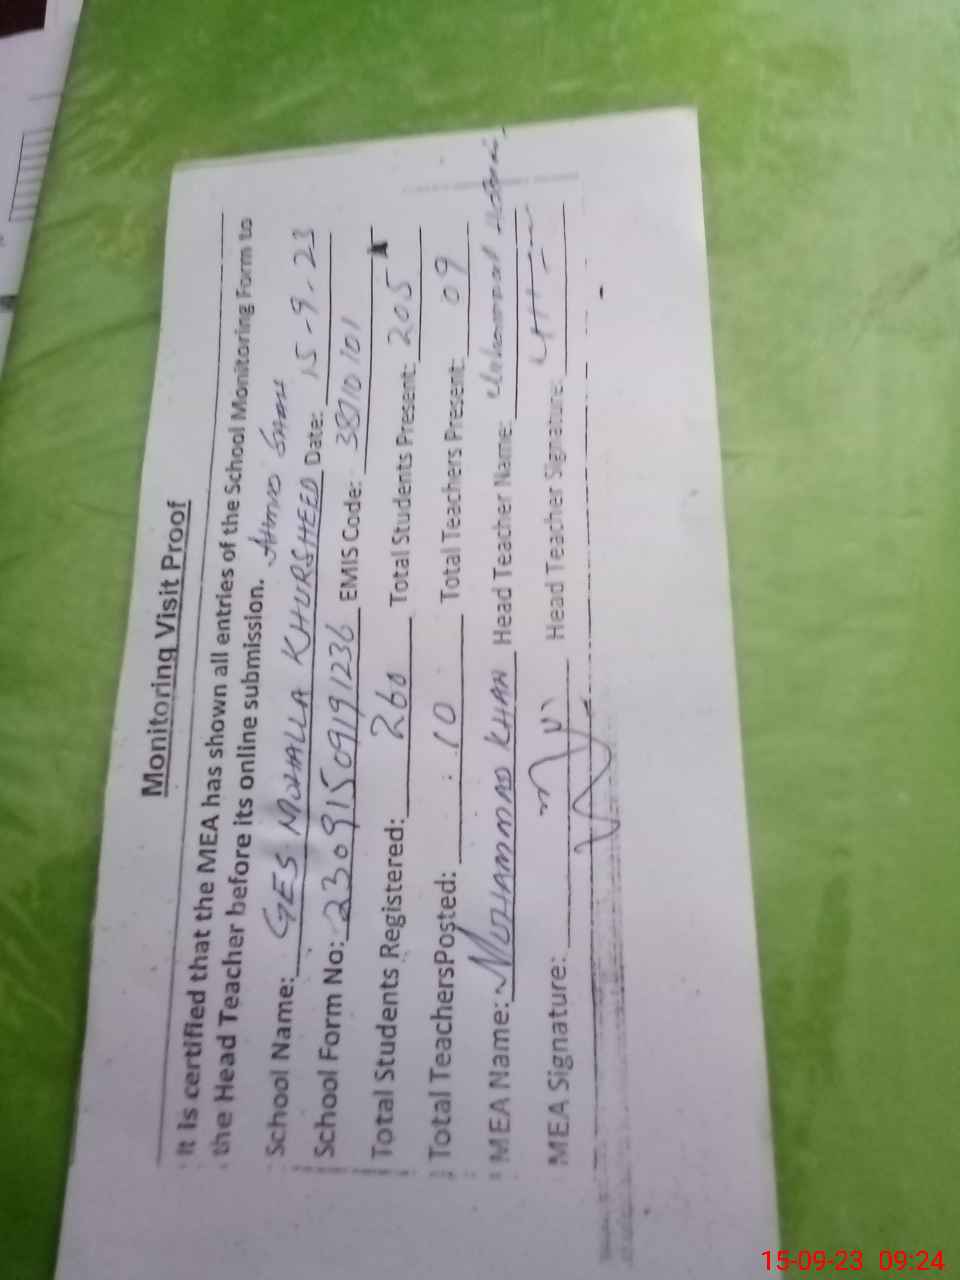 Monitoring Visit Proof
It Is certified that the MEA has shown all entries of the School Monitoring Form to
the Head Teacher before its online submission.
School Name: GES MOHALLA KHURSHEED AHMAD Date: 15-9-23
School Form No: 2309150919 1236 EMIS Code: 38710101
Total Students Registered: 260 Total Students Present: 205
Total TeachersPosted: 10 Total Teachers Present: 09
MEA Name: MOHAMMAD KHAN Head Teacher Name: Muhammad
MEA Signature: Head Teacher Signature:
15-09-23 09:24